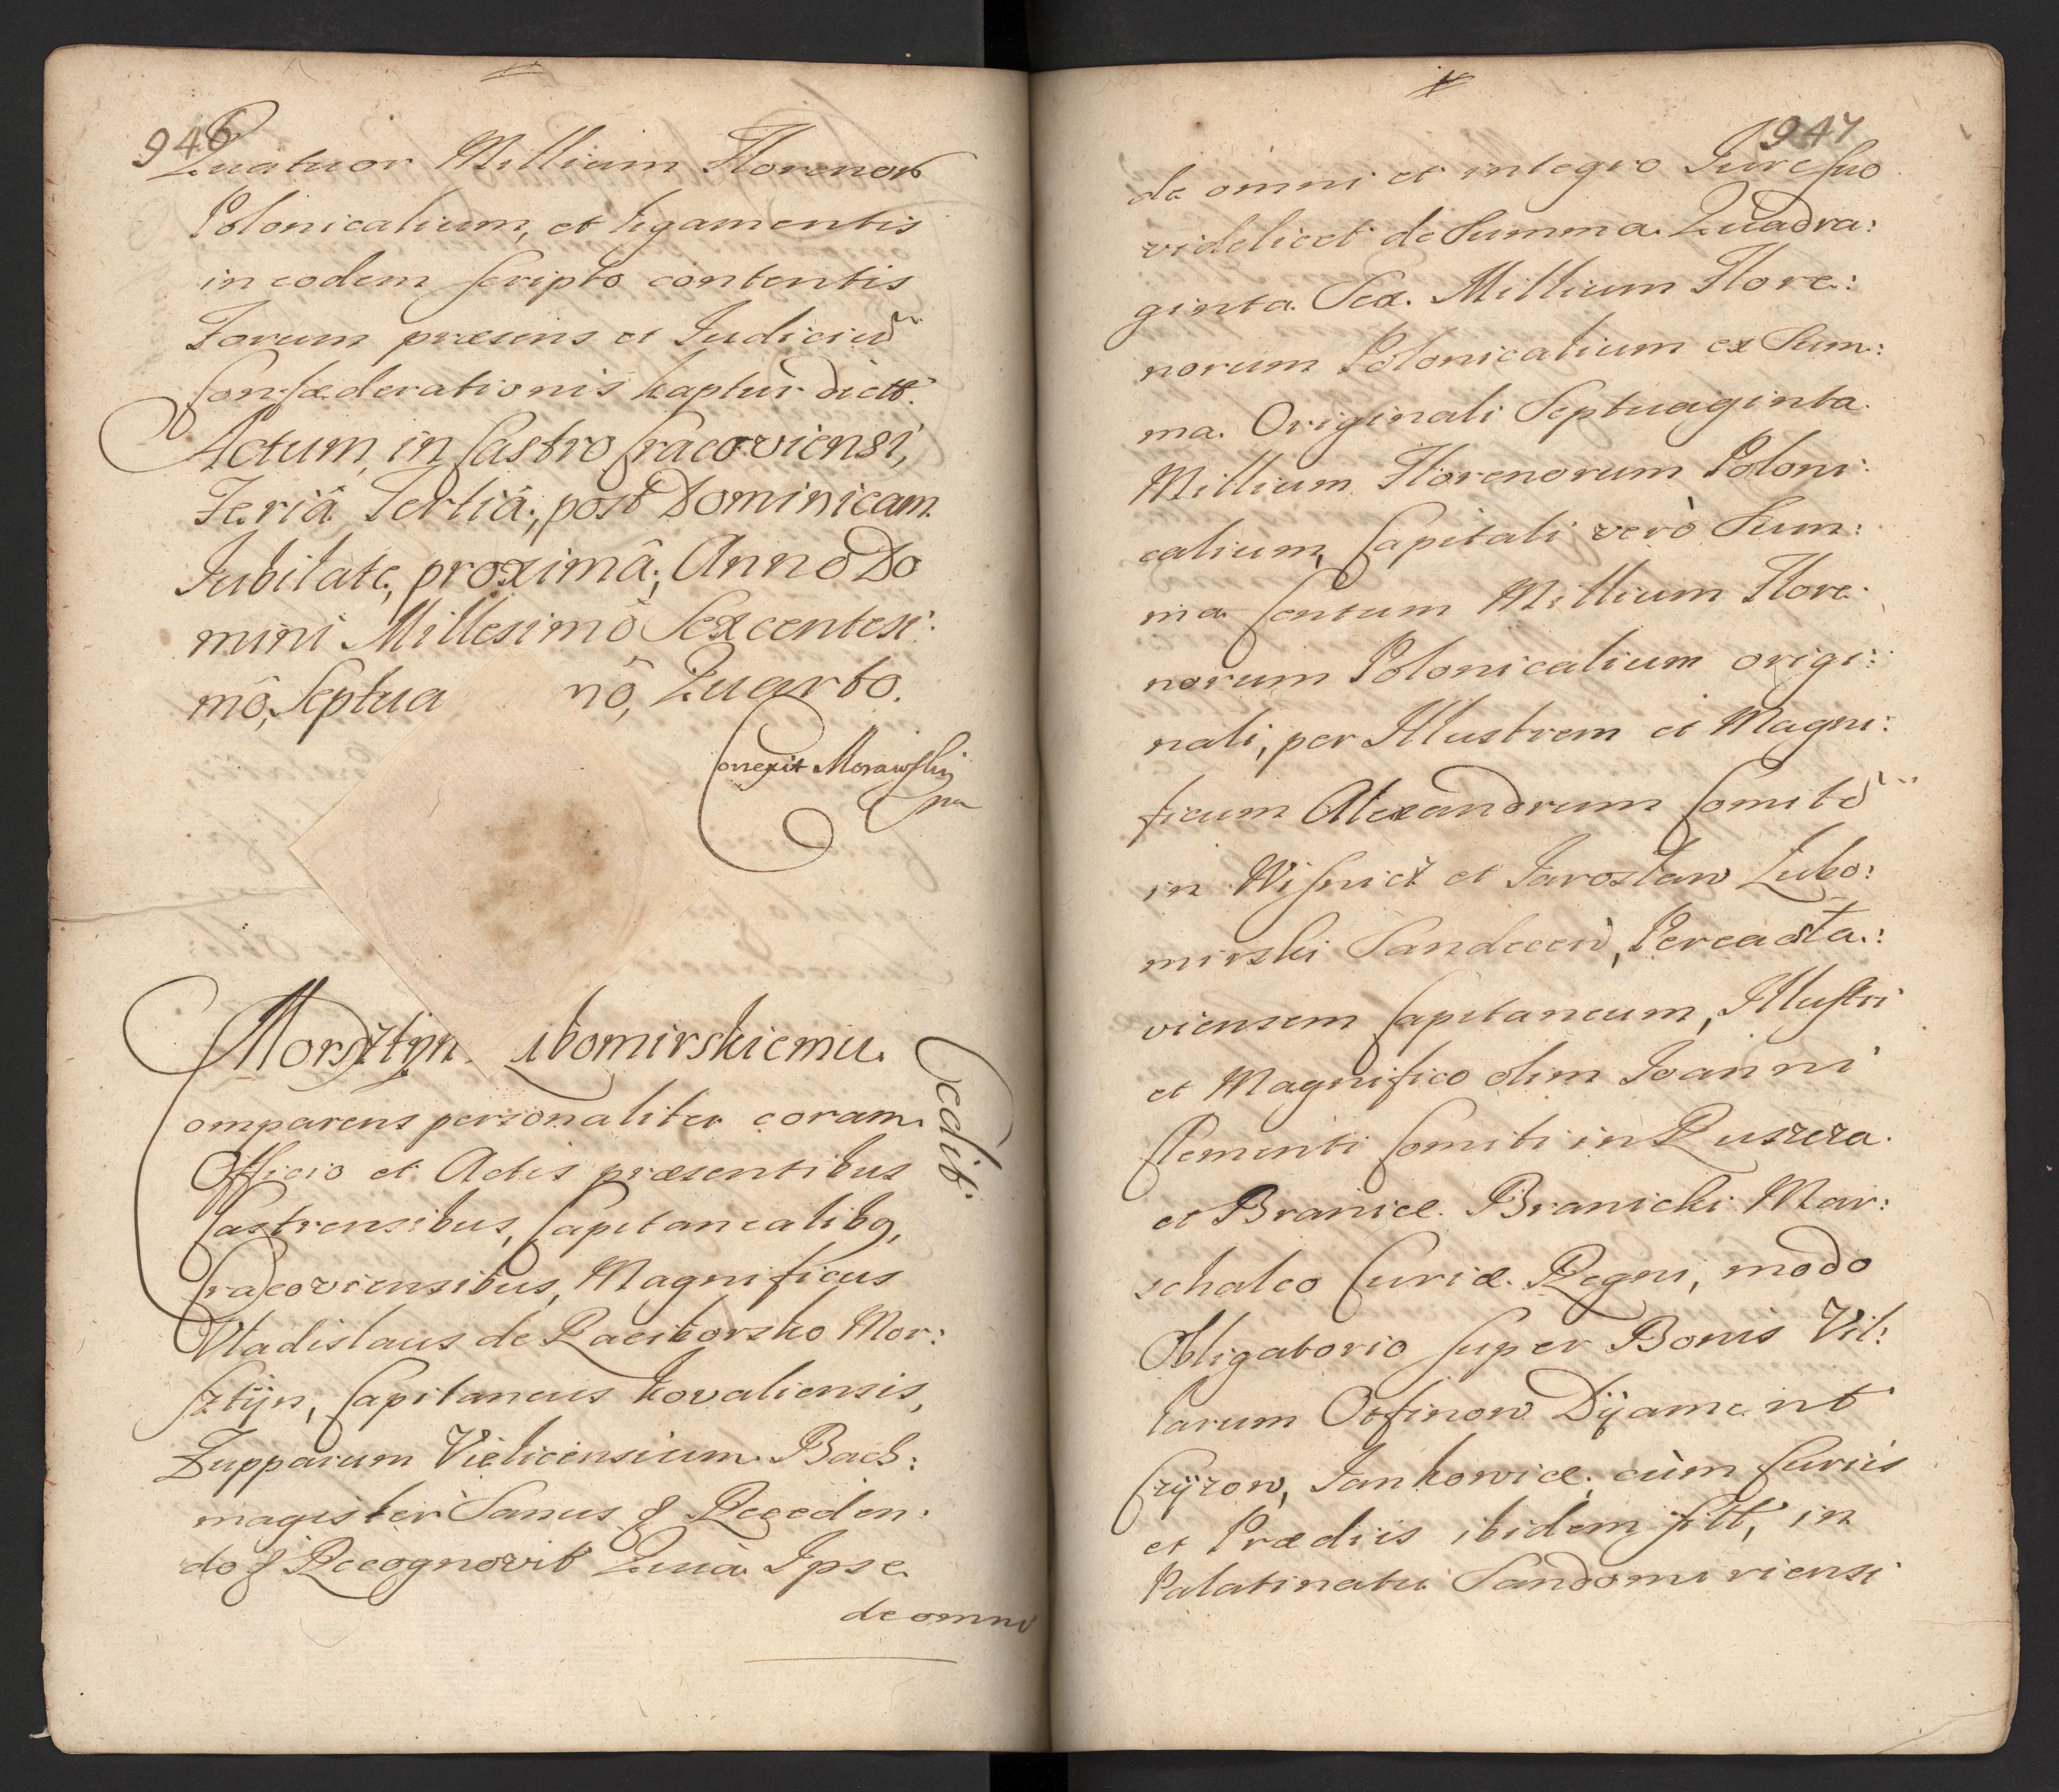 946
Quatuor Millium Florenor
Polonicalium, et ligamentis
in eodem scripto contentis
Forum præsens et Judiciu
Confæderationis kaptur dictt.
Actum, in Castro Cracoviensi,
Feriâ Tertiâ, post Dominicam
Jubilate, proximâ, Anno Do
mini Millesimô Sexcentesi:
mô, Septua nô, Quarto.
Correxit Morawski
mp
Morsztyn ubomirskiemu.
Cedit.
Comparens personaliter coram
Officio et Actis præsentibus
Castrensibus, Capitanealibq,
Cracoviensibus, Magnificus
Vladislaus de Raciborsko Mor:
sztÿn, Capitaneus kovaliensis,
Zupparum Vielicensium Bach:
magister Sanus & Recedend:
do & Recognovit Quia Ipse
de omni
947
de omni et integro Jure suo
videlicet de Summa Quadra:
ginta Sex Millium Flore:
norum Polonicalium ex Sum:
ma Originali Septuaginta
Millium Florenorum Poloni:
calium, Capitali verò Sum:
ma Centum Millium Flore:
norum Polonicalium origi:
nali, per Illustrem et Magni:
ficum Alexandrum Comite
in Wisnicz et Jaroslaw Lubo:
mirski Sandecen, Pereasta:
viensem Capitaneum, Illustri
et Magnifico olim Joanni
Clementi Comiti in Ruszcza
et Branice Branicki Mar:
schalco Curiæ Regni, modo
Obligatorio super Bonis Vil:
larum Otfinow Dÿament
Czÿzow, Jankowice, cùm Curiis
et Prædiis ibidem sitt, in
Palatinatu Sandomiriensi